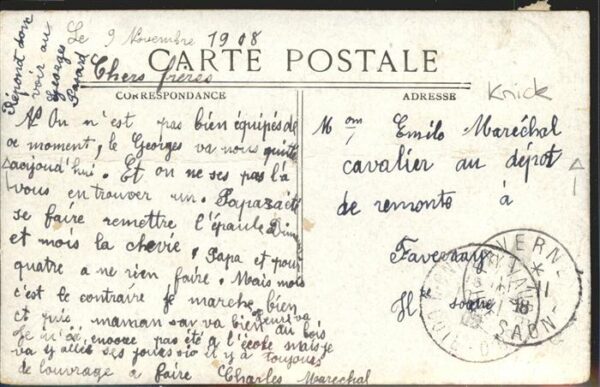 Le 9 Novembre 1908
CARTE POSTALE
Chers frères
CORRESPONDANCE
ADRESSE
Knick
Répond
voir au
Georges
On n'est pas bien équipés de
ce moment, le Georges va nous quitté
aujoud'hui. Et on ne ses pas l'à
vous en trouver un. Papa a été
se faire remettre l'épaule
et mois la chevié, Papa et pour
quatre a ne rien faire. Mais mois
c'est le contraire je marche bien
et puis, maman va bien
Je n'ai encore pas été a l'écote mais je
va y allés ses jours si il y à toujours
de louvrage a faire Charles Marechal
Mom Emile Maréchal
cavalier au dépot
de remonte à
Faverney
Hte Saône
FAVERNEY
SAON